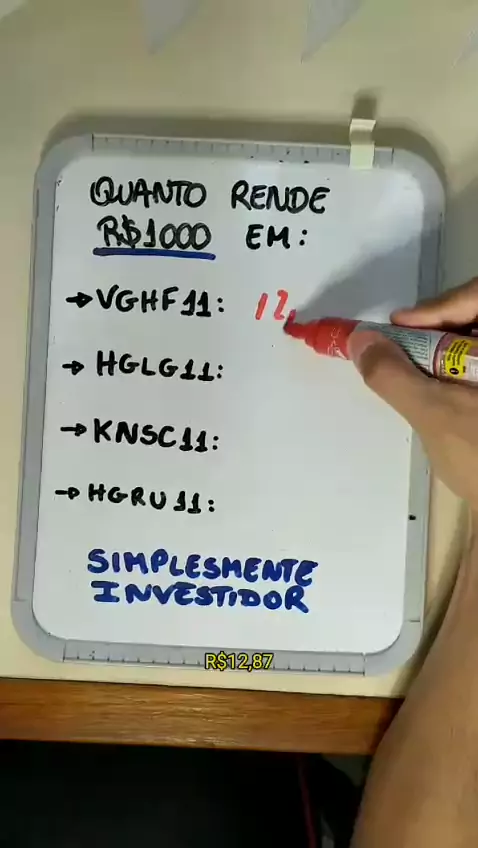 QUANTO RENDE
R$1000 EM:
→VGHF11: 12,
→HGLG11:
→KNSC11:
→HGRU11:
SIMPLESMENTE
INVESTIDOR
R$12,87